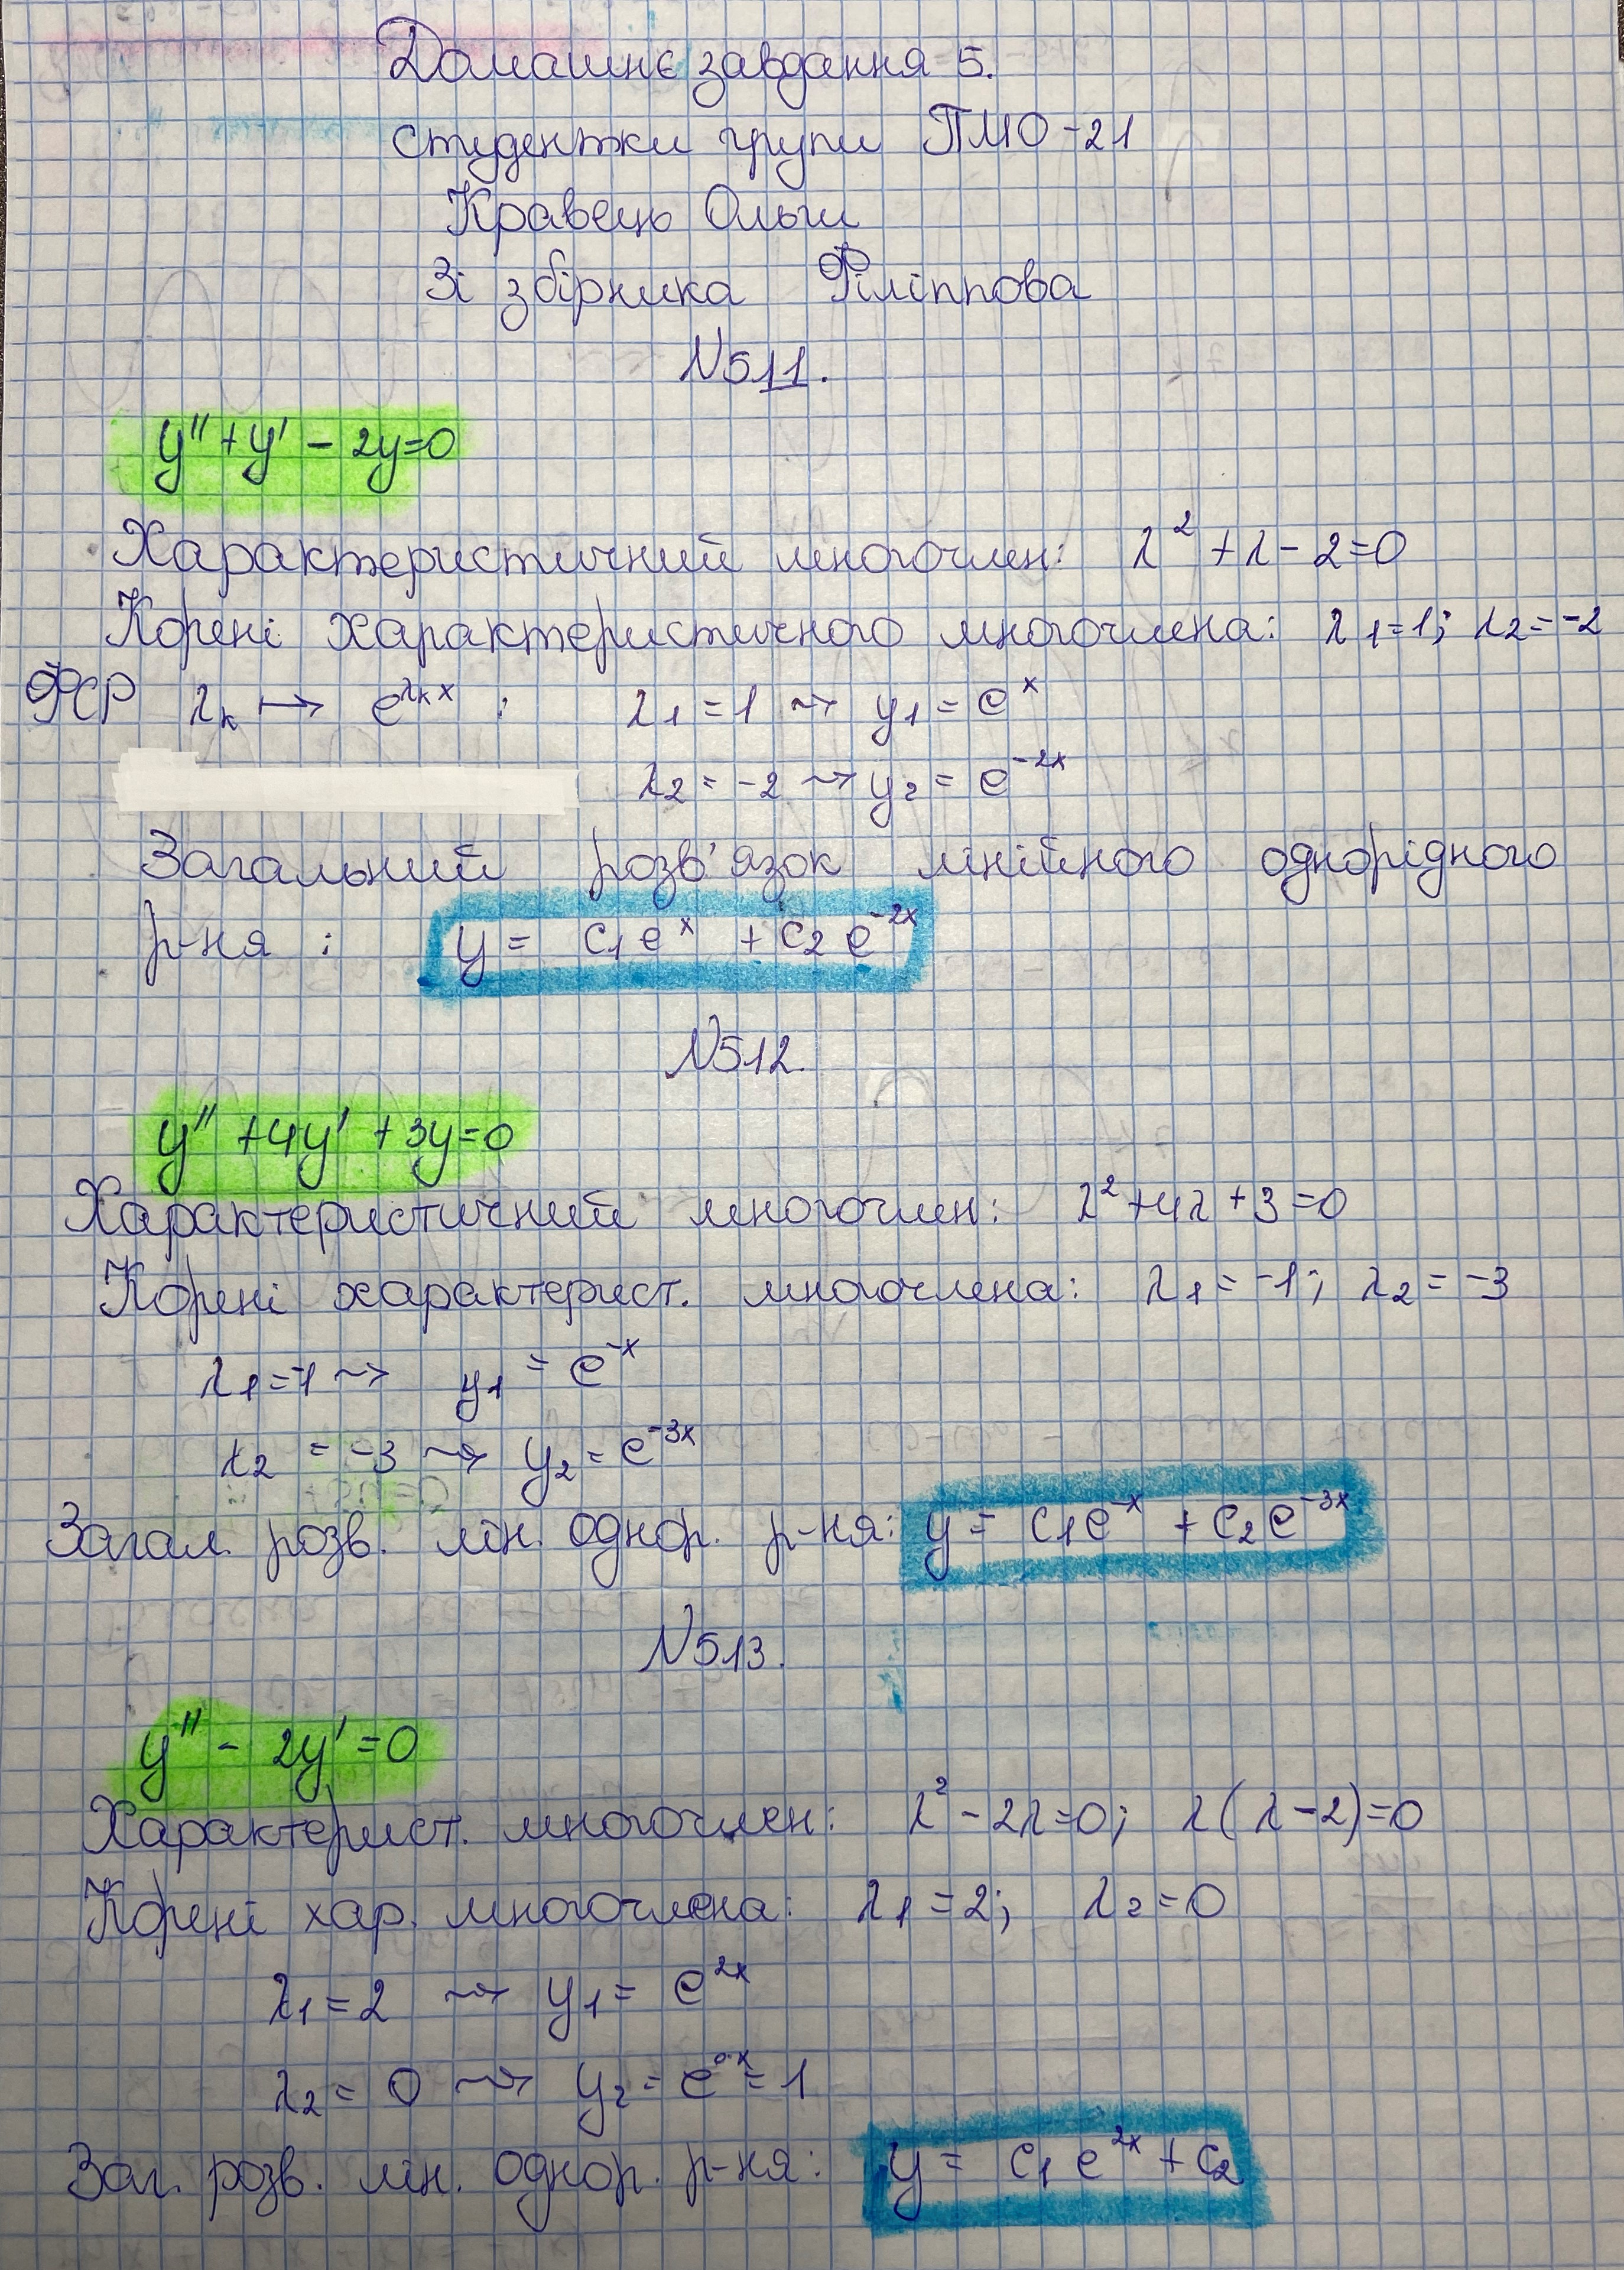 Домашнє завдання 5.
студентки групи ПМО-21
Кравець Ольги
Зі збірника Філіппова
№511.
y'' + y' - 2y = 0
Характеристичний многочлен: λ² + λ - 2 = 0
Корені характеристичного многочлена: λ1 = 1; λ2 = -2
ФСР λk ↦ e^{λk x} : λ1 = 1 ⇝ y1 = e^x
λ2 = -2 ⇝ y2 = e^{-2x}
Загальний розв'язок лінійного однорідного
р-ня : y = C1 e^x + C2 e^{-2x}
№512.
y'' + 4y' + 3y = 0
Характеристичний многочлен: λ² + 4λ + 3 = 0
Корені характерист. многочлена: λ1 = -1; λ2 = -3
λ1 = -1 ⇝ y1 = e^{-x}
λ2 = -3 ⇝ y2 = e^{-3x}
Загал. розв. лін. однор. р-ня: y = C1 e^{-x} + C2 e^{-3x}
№513.
y'' - 2y' = 0
Характерист. многочлен: λ² - 2λ = 0; λ(λ - 2) = 0
Корені хар. многочлена: λ1 = 2; λ2 = 0
λ1 = 2 ⇝ y1 = e^{2x}
λ2 = 0 ⇝ y2 = e^{0·x} = 1
Заг. розв. лін. однор. р-ня: y = C1 e^{2x} + C2